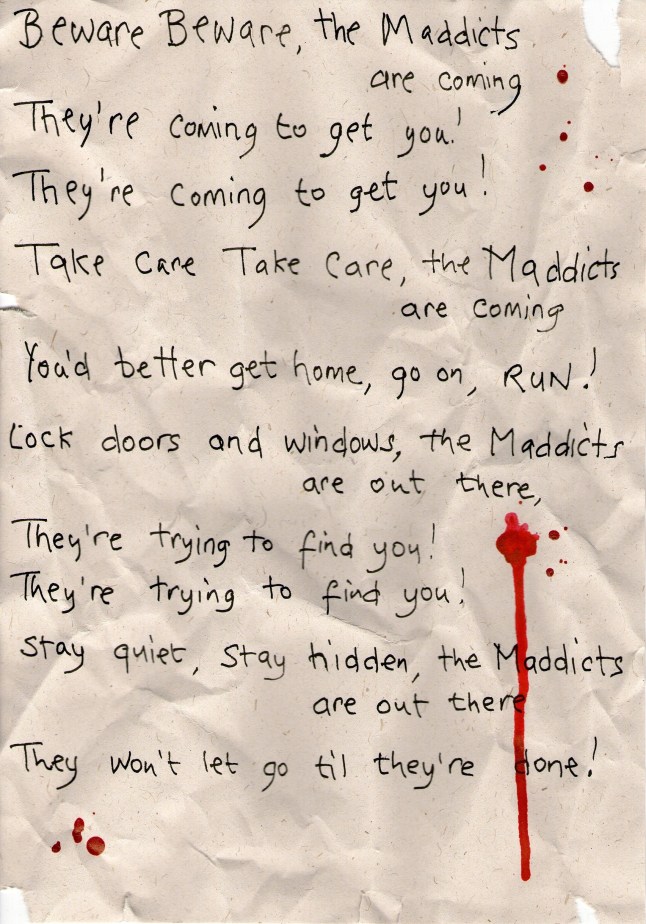 Beware Beware, the Maddicts
are coming
They're coming to get you!
They're coming to get you!
Take Care Take Care, the Maddicts
are coming
You'd better get home, go on, RUN!
Lock doors and windows, the Maddicts
are out there,
They're trying to find you!
They're trying to find you!
Stay quiet, Stay hidden, the Maddicts
are out there
They won't let go til they're done!